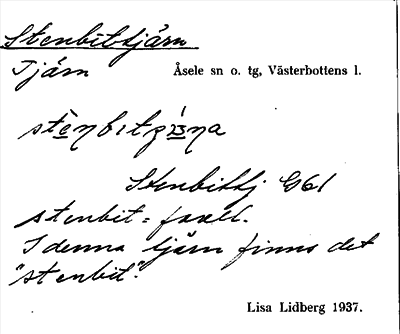 Stenbitstjärn
Tjärn Åsele sn o. tg, Västerbottens l.
Stenbittj. G61
stenbit =
I denna tjärn finns det
"stenbit".
Lisa Lidberg 1937.